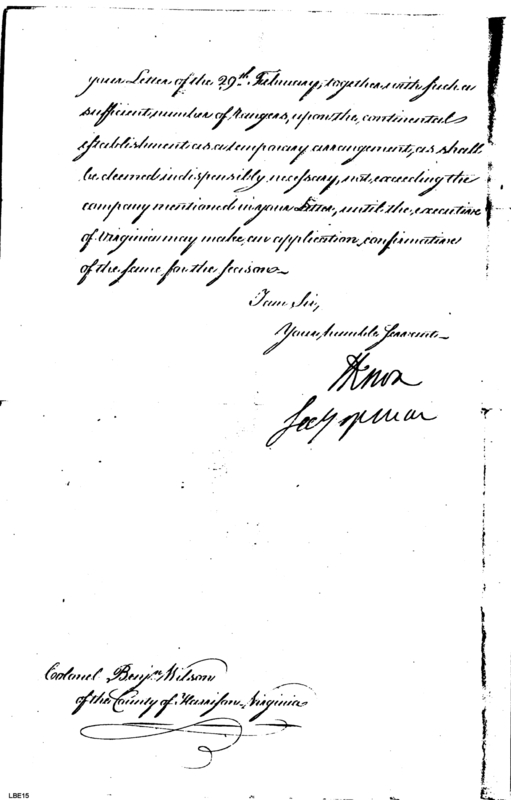 your Letter of the 29th February, together with such a
sufficient number of Rangers, upon the continental
establishment as a temporary arrangement, as shall
be deemed indispensibly necessary, not exceeding the
company mentioned in your Letter, until the executive
of Virginia may make an application confirmative
of the same for the season—
I am Sir,
Your humble Servant—
HKnox
Secy of War
Colonel Benjn Wilson
of the County of Harrison Virginia
LBE15